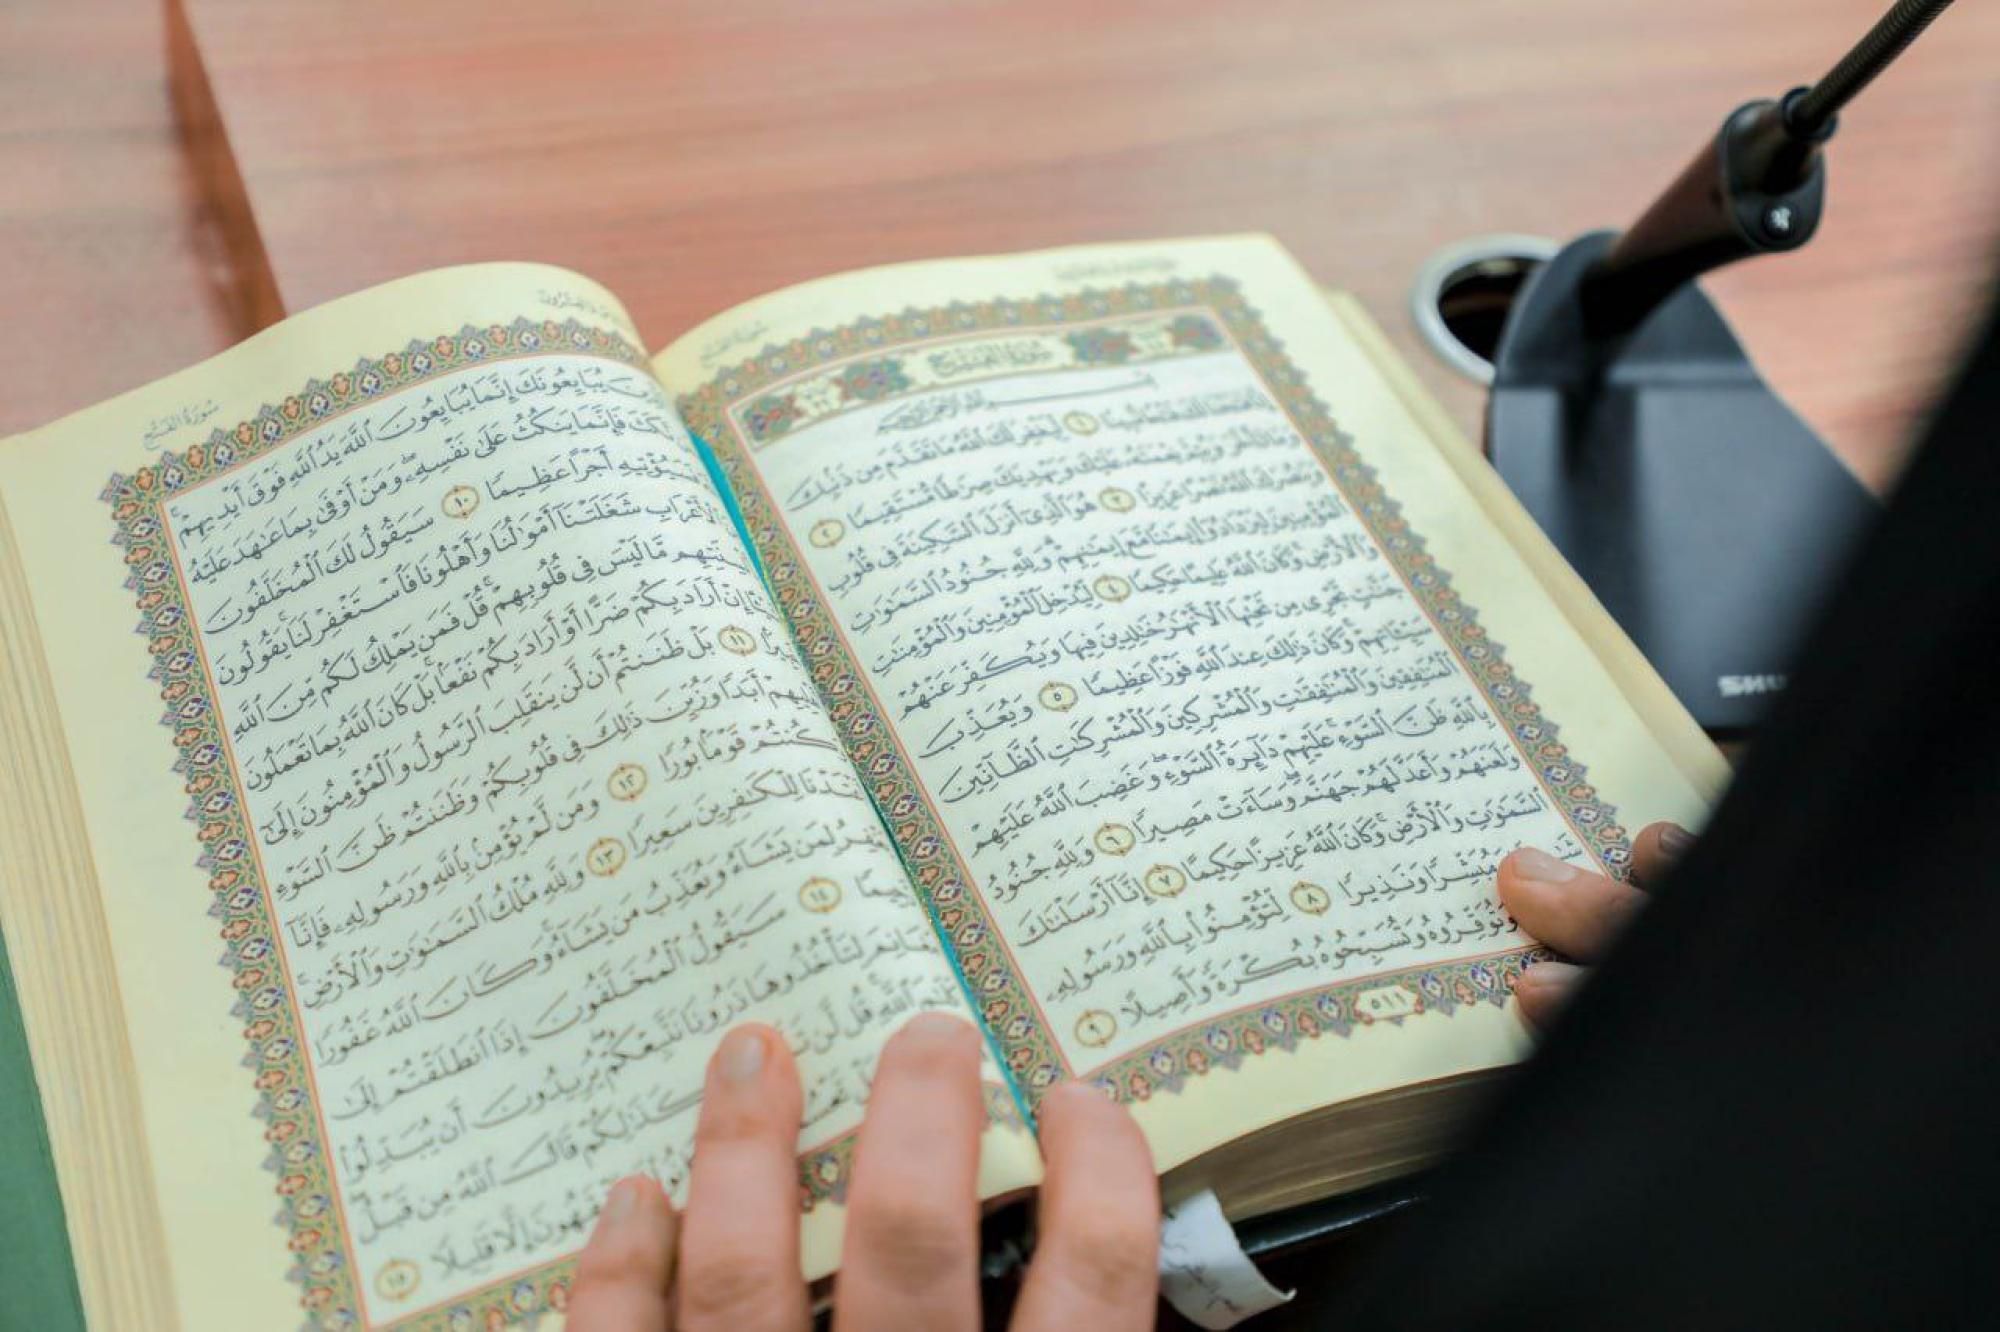 سُورَةُ الفَتْحِ
سُورَةُ الفَتْحِ
بِسْمِ ٱللَّهِ ٱلرَّحْمَٰنِ ٱلرَّحِيمِ
إِنَّا فَتَحْنَا لَكَ فَتْحًا مُّبِينًا ١ لِّيَغْفِرَ لَكَ ٱللَّهُ مَا تَقَدَّمَ مِن ذَنۢبِكَ
وَمَا تَأَخَّرَ وَيُتِمَّ نِعْمَتَهُۥ عَلَيْكَ وَيَهْدِيَكَ صِرَٰطًا مُّسْتَقِيمًا ٢
وَيَنصُرَكَ ٱللَّهُ نَصْرًا عَزِيزًا ٣ هُوَ ٱلَّذِىٓ أَنزَلَ ٱلسَّكِينَةَ فِى قُلُوبِ
ٱلْمُؤْمِنِينَ لِيَزْدَادُوٓا۟ إِيمَٰنًا مَّعَ إِيمَٰنِهِمْ ۗ وَلِلَّهِ جُنُودُ ٱلسَّمَٰوَٰتِ
وَٱلْأَرْضِ ۚ وَكَانَ ٱللَّهُ عَلِيمًا حَكِيمًا ٤ لِّيُدْخِلَ ٱلْمُؤْمِنِينَ وَٱلْمُؤْمِنَٰتِ
جَنَّٰتٍ تَجْرِى مِن تَحْتِهَا ٱلْأَنْهَٰرُ خَٰلِدِينَ فِيهَا وَيُكَفِّرَ عَنْهُمْ
سَيِّـَٔاتِهِمْ ۚ وَكَانَ ذَٰلِكَ عِندَ ٱللَّهِ فَوْزًا عَظِيمًا ٥ وَيُعَذِّبَ
ٱلْمُنَٰفِقِينَ وَٱلْمُنَٰفِقَٰتِ وَٱلْمُشْرِكِينَ وَٱلْمُشْرِكَٰتِ ٱلظَّآنِّينَ
بِٱللَّهِ ظَنَّ ٱلسَّوْءِ ۚ عَلَيْهِمْ دَآئِرَةُ ٱلسَّوْءِ ۖ وَغَضِبَ ٱللَّهُ عَلَيْهِمْ
وَلَعَنَهُمْ وَأَعَدَّ لَهُمْ جَهَنَّمَ ۖ وَسَآءَتْ مَصِيرًا ٦ وَلِلَّهِ جُنُودُ
ٱلسَّمَٰوَٰتِ وَٱلْأَرْضِ ۚ وَكَانَ ٱللَّهُ عَزِيزًا حَكِيمًا ٧ إِنَّآ أَرْسَلْنَٰكَ
وَمُبَشِّرًا وَنَذِيرًا ٨ لِّتُؤْمِنُوا۟ بِٱللَّهِ وَرَسُولِهِۦ
وَتُوَقِّرُوهُ وَتُسَبِّحُوهُ بُكْرَةً وَأَصِيلًا ٩
٥١١
سُورَةُ الفَتْحِ
يُبَايِعُونَكَ إِنَّمَا يُبَايِعُونَ ٱللَّهَ يَدُ ٱللَّهِ فَوْقَ أَيْدِيهِمْ ۚ
فَإِنَّمَا يَنكُثُ عَلَىٰ نَفْسِهِۦ ۖ وَمَنْ أَوْفَىٰ بِمَا عَٰهَدَ عَلَيْهُ
أَجْرًا عَظِيمًا ١٠ سَيَقُولُ لَكَ ٱلْمُخَلَّفُونَ
ٱلْأَعْرَابِ شَغَلَتْنَآ أَمْوَٰلُنَا وَأَهْلُونَا فَٱسْتَغْفِرْ لَنَا ۚ يَقُولُونَ
مَّا لَيْسَ فِى قُلُوبِهِمْ ۚ قُلْ فَمَن يَمْلِكُ لَكُم مِّنَ ٱللَّهِ
إِنْ أَرَادَ بِكُمْ ضَرًّا أَوْ أَرَادَ بِكُمْ نَفْعًۢا ۚ بَلْ كَانَ ٱللَّهُ بِمَا تَعْمَلُونَ
١١ بَلْ ظَنَنتُمْ أَن لَّن يَنقَلِبَ ٱلرَّسُولُ وَٱلْمُؤْمِنُونَ إِلَىٰٓ
أَبَدًا وَزُيِّنَ ذَٰلِكَ فِى قُلُوبِكُمْ وَظَنَنتُمْ ظَنَّ ٱلسَّوْءِ
قَوْمًۢا بُورًا ١٢ وَمَن لَّمْ يُؤْمِنۢ بِٱللَّهِ وَرَسُولِهِۦ فَإِنَّآ
لِلْكَٰفِرِينَ سَعِيرًا ١٣ وَلِلَّهِ مُلْكُ ٱلسَّمَٰوَٰتِ وَٱلْأَرْضِ ۚ
لِمَن يَشَآءُ وَيُعَذِّبُ مَن يَشَآءُ ۚ وَكَانَ ٱللَّهُ غَفُورًا
١٤ سَيَقُولُ ٱلْمُخَلَّفُونَ إِذَا ٱنطَلَقْتُمْ إِلَىٰ
لِتَأْخُذُوهَا ذَرُونَا نَتَّبِعْكُمْ ۖ يُرِيدُونَ أَن يُبَدِّلُوا۟
ٱللَّهِ ۚ قُل لَّن كَذَٰلِكُمْ قَالَ ٱللَّهُ مِن قَبْلُ ۖ
إِلَّا قَلِيلًا ١٥